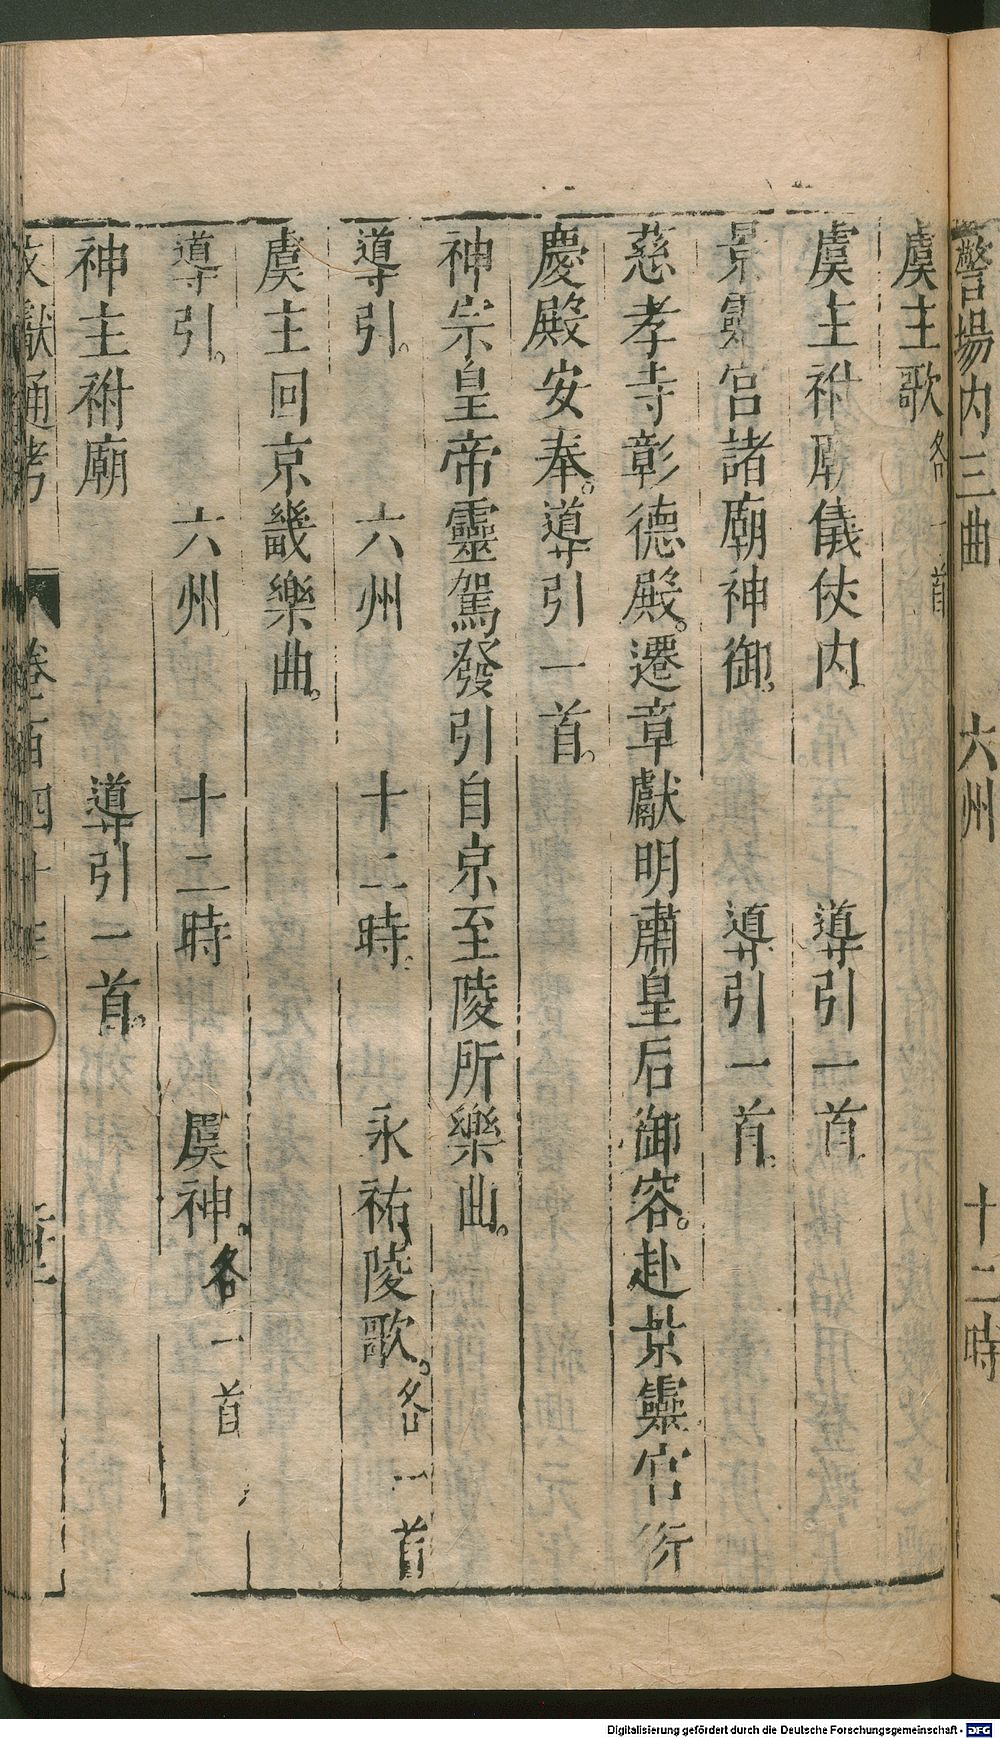 警場内三曲 六州 十二時
虞主歌各一首
虞主祔廟儀仗内 導引一首
景靈宮諸廟神御 導引一首
慈孝寺彰德殿遷章獻明肅皇后御容赴景靈宮衍
慶殿安奉導引一首
神宗皇帝靈駕發引自京至陵所樂曲
導引 六州 十二時 永祐陵歌各一首
虞主回京畿樂曲
導引 六州 十二時 虞神各一首
神主祔廟 導引一首
文獻通考 卷百四十
Digitalisierung gefördert durch die Deutsche Forschungsgemeinschaft - DFG